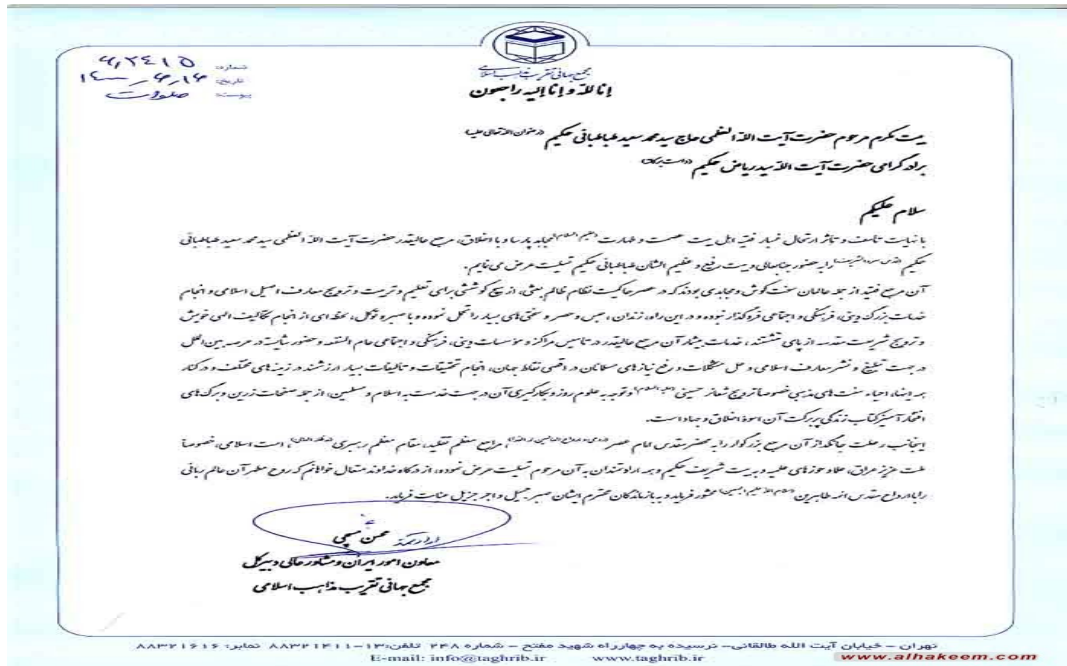 مجمع جهانی تقریب مذاهب اسلامی
شماره:
تاریخ: ۱۴۰۰/۶/۱۶
پیوست: صلوات
انا للّه و انا الیه راجعون
بیت مکرم مرحوم حضرت آیت الله العظمی حاج سید محمد سعید طباطبائی حکیم (رضوان الله تعالی علیه)
برادر گرامی حضرت آیت الله سید ریاض حکیم (دامت برکاته)
سلام علیکم
با نهایت تاسف و تاثر ارتحال غمبار فقیه اهل بیت عصمت و طهارت (علیهم السلام) مجاهد پارسا و با اخلاق، مرجع عالیقدر حضرت آیت الله العظمی سید محمد سعید طباطبائی
حکیم را به حضور جنابعالی و بیت رفیع و عظیم الشان طباطبائی حکیم تسلیت عرض می نمایم.
آن مرجع فقید از جمله عالمان سخت کوش و مجاهدی بودند که در عصر حاکمیت نظام ظالم بعثی، از هیچ کوششی برای تعلیم و تربیت و ترویج معارف اصیل اسلامی و انجام
خدمات بزرگ دینی، فرهنگی و اجتماعی فروگذار نبوده و در این راه، زندان، حبس و حصر و سختی های بسیار را تحمل نموده و با صبر و توکل، لحظه ای از انجام تکالیف الهی خویش
و ترویج شریعت مقدسه از پای ننشستند، خدمات بیشمار آن مرجع عالیقدر در تاسیس مراکز و موسسات دینی، فرهنگی و اجتماعی عام المنفعه و حضور شایسته در عرصه بین الملل
در جهت تبلیغ و نشر معارف اسلامی و حل مشکلات و رفع نیازهای مسلمانان در اقصی نقاط جهان، انجام تحقیقات و تالیفات بسیار ارزشمند در زمینه های مختلف و در کنار
همه اینها، احیاء سنت های مذهبی خصوصاً ترویج شعائر حسینی (علیه السلام) و توجه به علوم روز و بکارگیری آن در جهت خدمت به اسلام و مسلمین، از جمله صفحات زرین و برگ های
افتخار آمیز کتاب زندگی پر برکت آن اسوه اخلاق و جهاد است.
اینجانب رحلت جانگداز آن مرجع بزرگوار را به محضر مقدس امام عصر مراجع معظم تقلید، مقام معظم رهبری، امت اسلامی، خصوصاً
ملت عزیز عراق، علماء حوزه های علمیه و بیت شریف حکیم و همه ارادتمندان به آن مرحوم تسلیت عرض نموده، از درگاه خداوند متعال خواهانم که روح مطهر آن عالم ربانی
را با ارواح مقدس ائمه طاهرین (سلام الله علیهم اجمعین) محشور فرماید و به بازماندگان محترم ایشان صبر جمیل و اجر جزیل عنایت فرماید.
ارادتمند محسن مسچی
معاون امور ایران و مشاور عالی دبیرکل
مجمع جهانی تقریب مذاهب اسلامی
تهران – خیابان آیت الله طالقانی– نرسیده به چهارراه شهید مفتح – شماره ۲۴۸ تلفن:۱۳–۸۸۳۲۱۴۱۱ نمابر: ۸۸۳۲۱۶۱۶
E-mail: info@taghrib.ir www.taghrib.ir
www.alhakeem.com